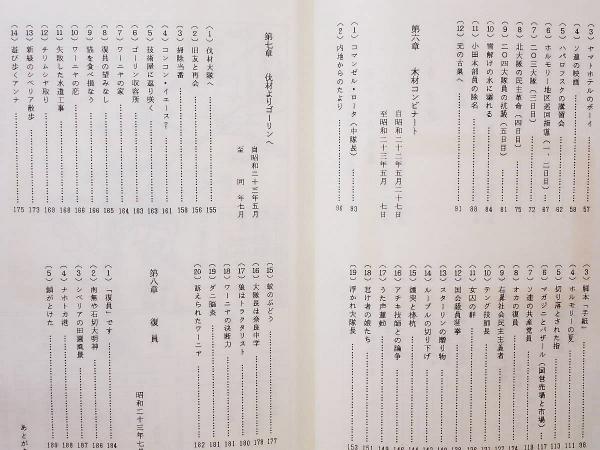 (3) ヤマトホテルのボーイ……57
(4) ソ連の映画……58
(5) ハバロフスクの講習会……62
(6) ホルモリー地区巡回指導（一、二日目）……67
(7) 二〇三大隊（三日目）……72
(8) 北大隊の民主革命（四日目）……75
(9) 二〇四大隊員の抗議（五日目）……81
(10) 雪解けの水に溺れる……84
(11) 小田木部員の除名……88
(12) 元の古巣へ……91
第六章　木材コンビナート
自昭和二十二年五月　七日
至昭和二十三年五月　七日
(1) コマンゼル・ロータ（中隊長）
(2) 内地からのたより……96
(3) 脚本「手紙」……98
(4) ホルモリーの夏……111
(5) 切り落とされた指……113
(6) マガジンとバザール（国営売場と市場）……117
(7) ソ連の共産党員……118
(8) オカの復員……124
(9) 右翼社会民主主義者……127
(10) テンダ技師長……131
(11) 女囚の群……132
(12) 国会議員選挙……134
(13) スターリンの贈り物……140
(14) ルーブルの切り下げ……142
(15) 煙突と棒杭……144
(16) アチキ技師との論争
(17) うた声運動……149
(18) 怠け者の娘たち……151
(19) 浮かれ大隊長……153
第七章　伐材よりゴーリンへ
自昭和二十三年五月
至　同　年七月
(1) 伐材大隊へ……155
(2) 旧友と再会……156
(3) 掃除当番……158
(4) コンコン・イエース？……161
(5) 技術屋に返り咲く……163
(6) ゴーリン収容所……163
(7) ワーニャの家……164
(8) 復員の望みなし……165
(9) 猫を食べ損なう……166
(10) ワーニャの恋……168
(11) 失敗した水道工事……168
(12) チリムシヤ取り……169
(13) 新設のシベリア散歩……173
(14) 遊び歩くアンナ……175
(15) 蚊のぶどう……177
(16) 大隊長は奈良中学……178
(17) 狼はトラクタリスト……180
(18) ワーニヤの決断力……181
(19) ダニ脳炎……181
(20) 訴えられたワーニヤ……182
第八章　復　員
昭和二十三年七
(1) 「復員」です……184
(2) 南無や石切大明神……186
(3) シベリアの田園風景……186
(4) ナホトカ港……188
(5) 鎖がとけた……189
あとが